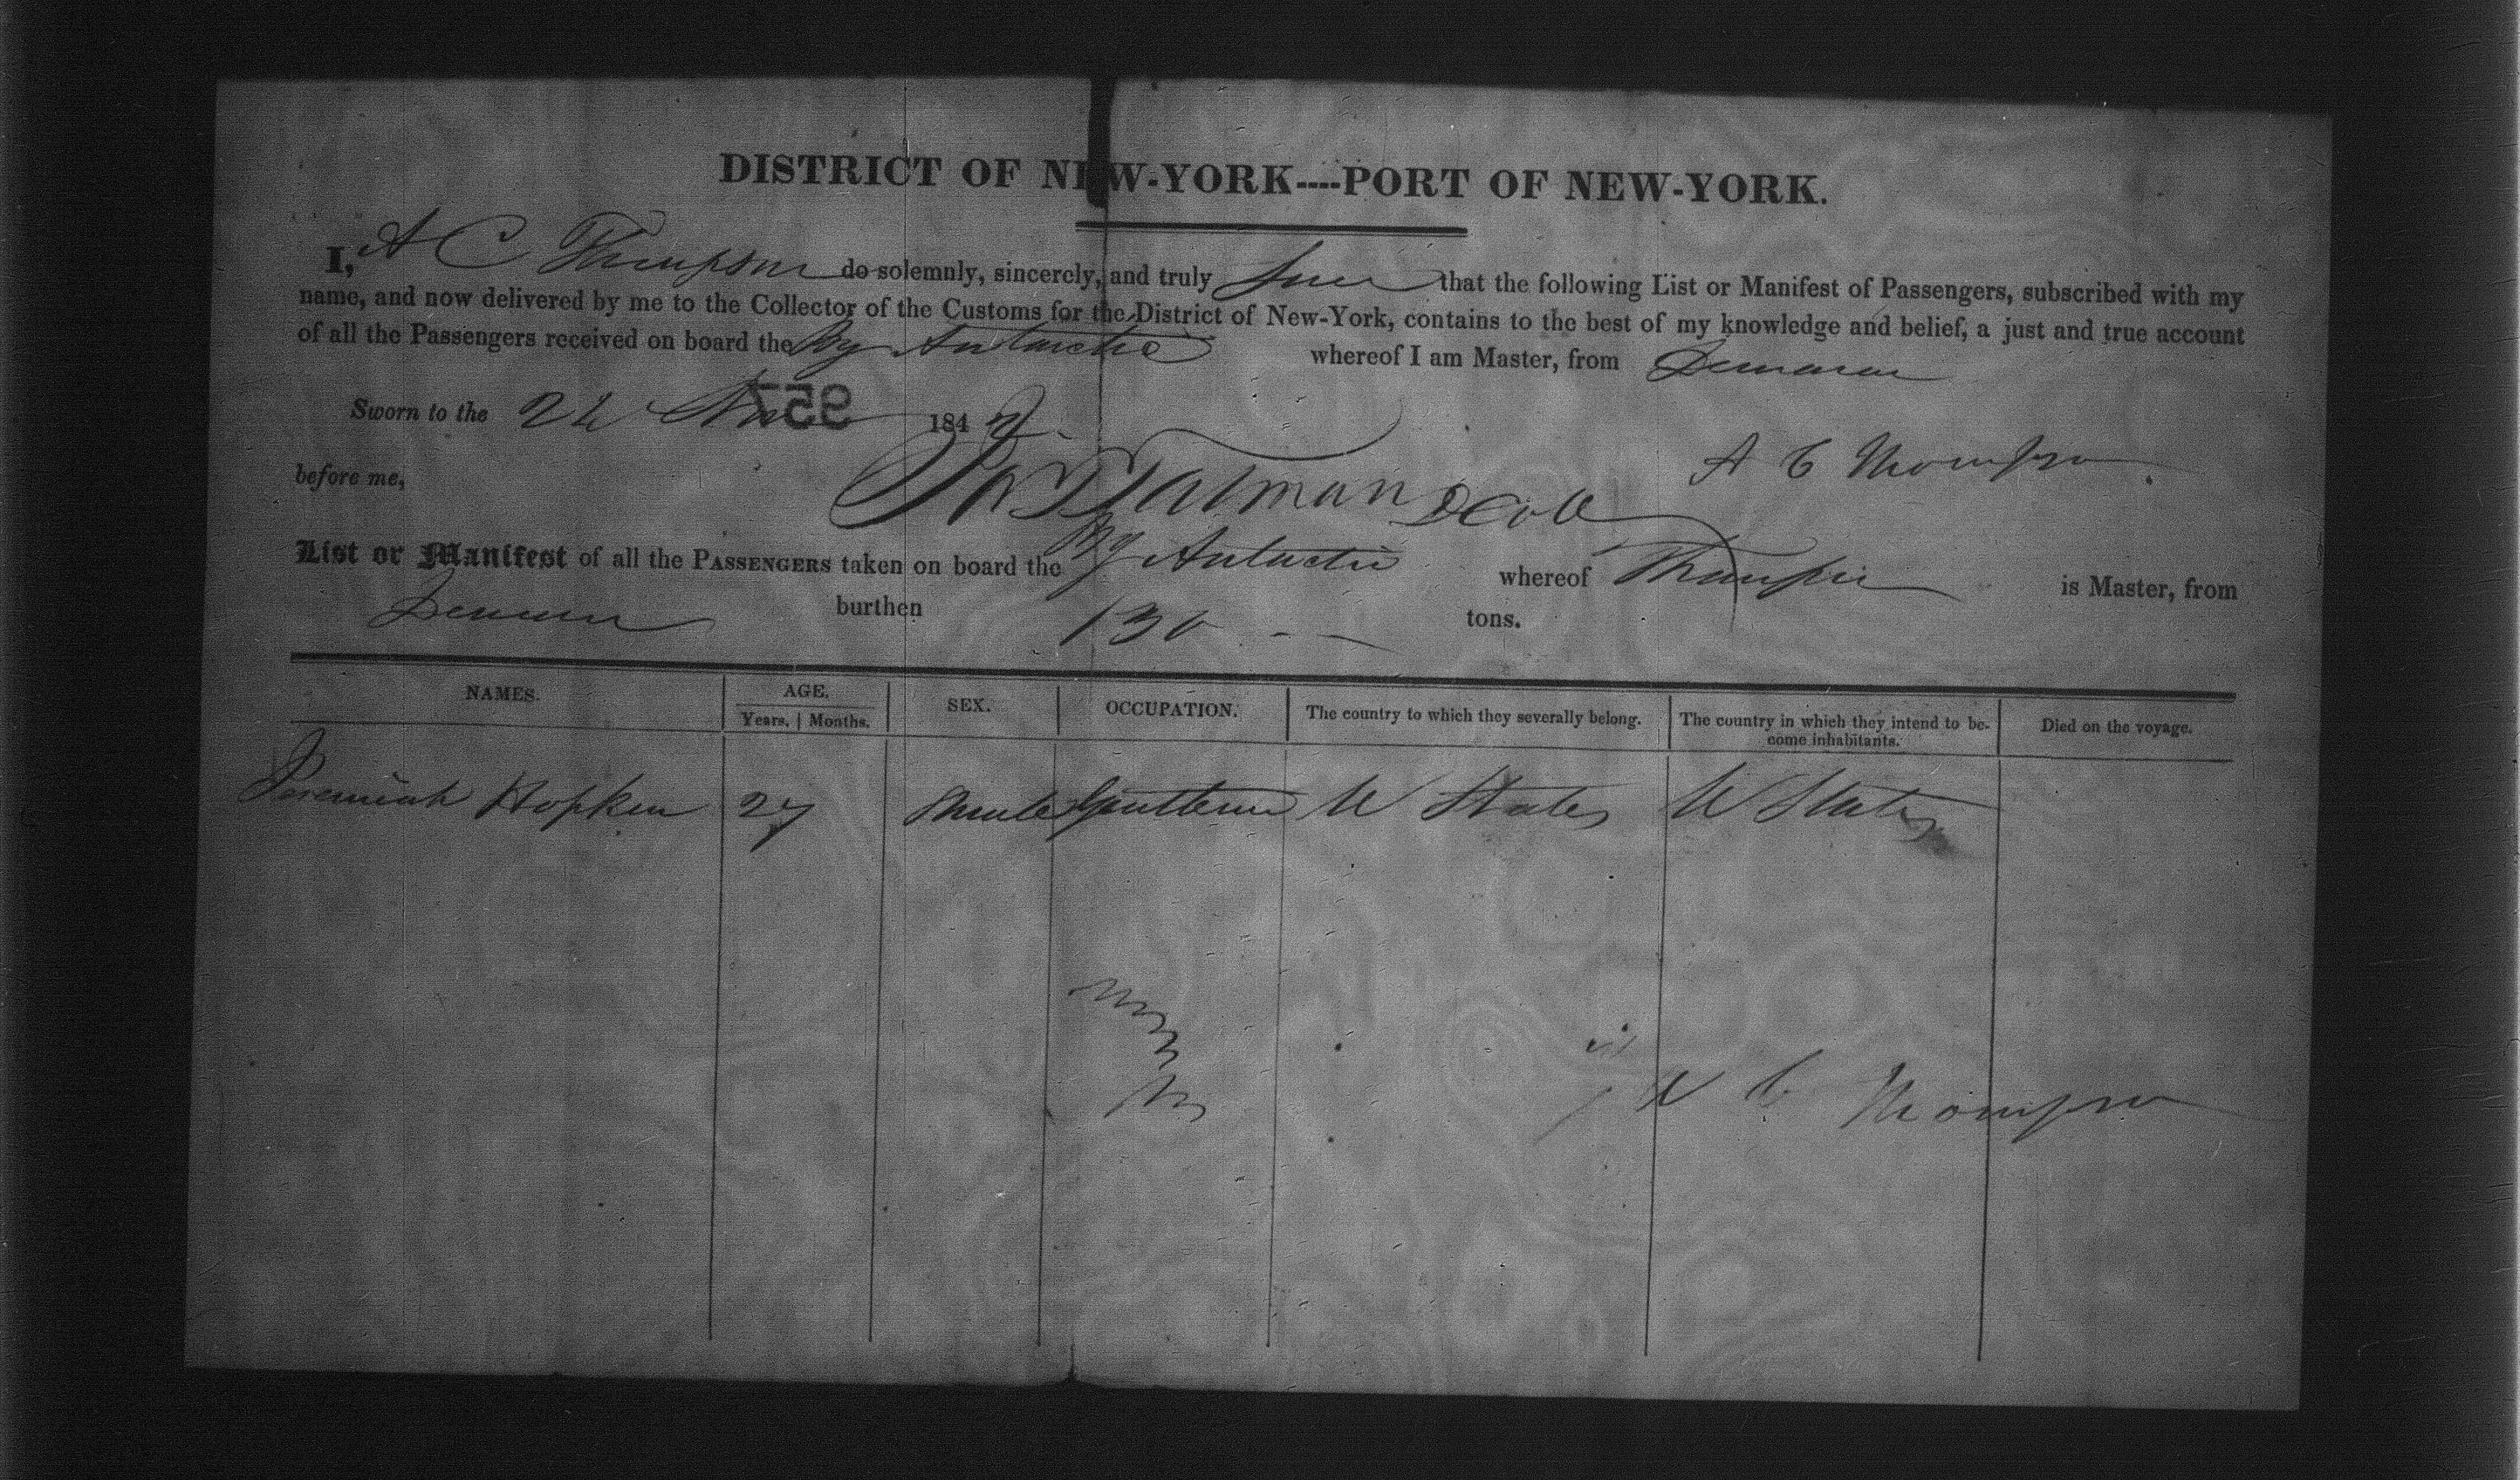 DISTRICT OF NEW-YORK----PORT OF NEW-YORK.
I, A C Thompson do solemnly, sincerely, and truly that the following List or Manifest of Passengers, subscribed with my
name, and now delivered by me to the Collector of the Customs for the District of New-York, contains to the best of my knowledge and belief, a just and true account
of all the Passengers received on board the Bg Antarctic whereof I am Master, from Demarara
Sworn to the 24 957 184
A C Thompson
before me, Talman D Coll
List or Manifest of all the PASSENGERS taken on board the Bg Antarctic whereof Thompson is Master, from
burthen 130 tons.
NAMES. AGE. SEX. OCCUPATION. The country to which they severally belong. The country in which they intend to be- Died on the voyage.
Years. Months. come inhabitants.
Jeremiah Hopkin 27 Male Gentleman U States U States
A C Thompson